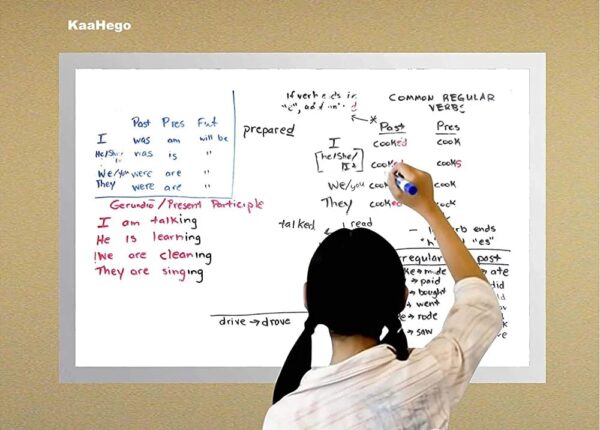 KaaHego
Past Pres Fut
I was am will be
He/She was is "
We/you were are "
They were are "
Gerundio/Present Participle
I am talking
He is learning
We are cleaning
They are singing
If verb ends in
"e", add on: d
prepared
COMMON REGULAR
VERBS
Past Pres
I cooked cook
[he/she/ cooks
We/you cook
They cooked
talked read
ends
"es"
past
made ate
paid
bought
went
rode
saw
drive → drove